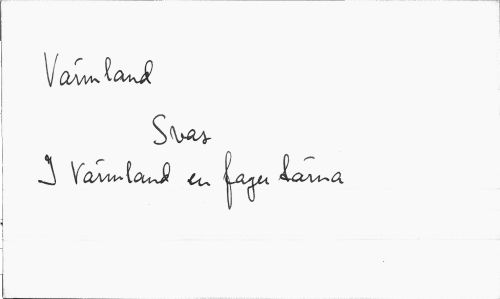 Värmland
Svar
I Värmland en fager tärna